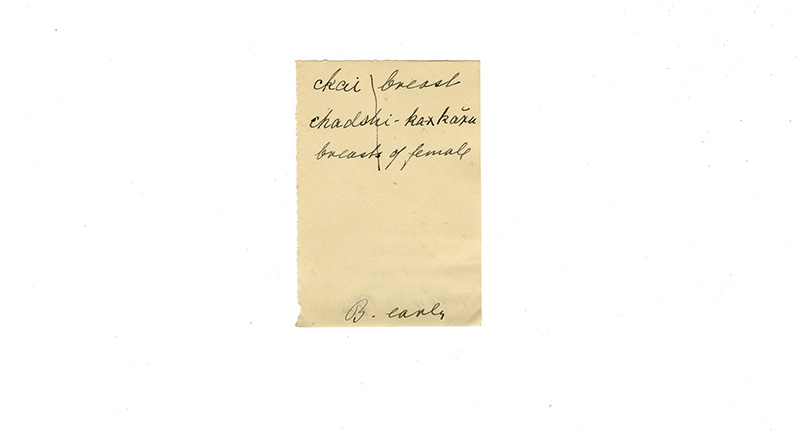 ckai breast
chadshi - kaxkăxu
breasts of female
B. early